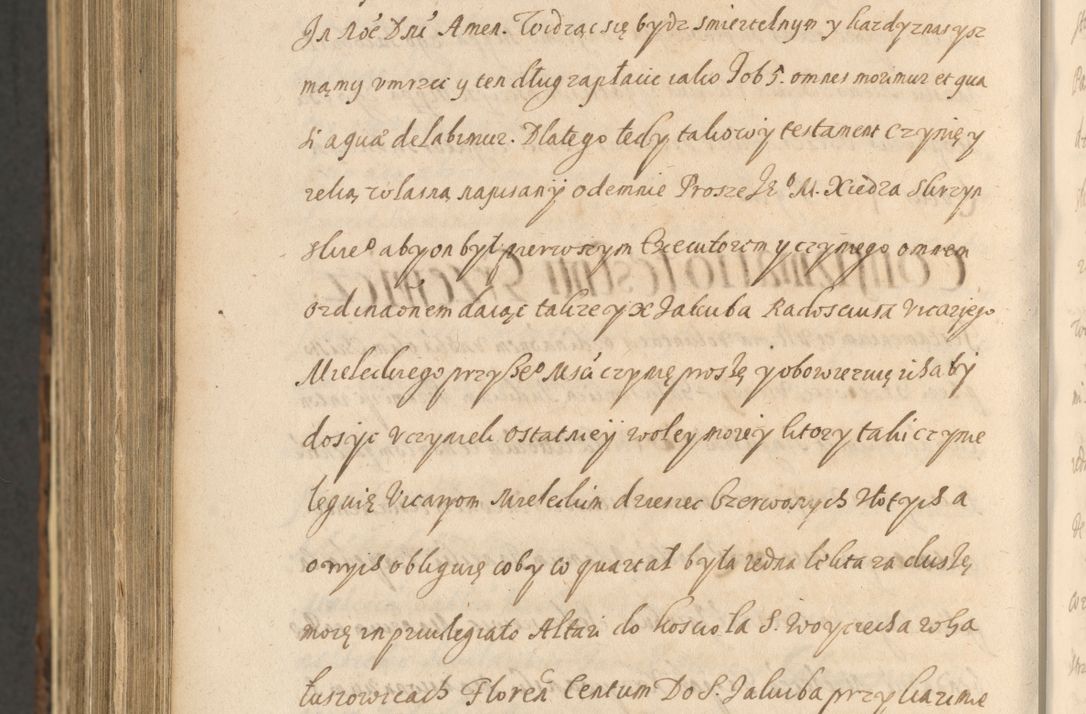 Jn Noe Dni Amen. Widząc się bydz smiertelnym y kazdy z nas ysz
mamy vmrzec y ten dług zapłacic iako Job 5. omnes morimur et qua
si aqua delabimur. Dlatego tedy takowy testament czynię y
ręką własną napisany odemnie Prosze Je° M. Xiedza Skrzyn
skie° aby on był pierwszym Executorem y czyniego omnem
ordinaonem daiąc takze y X Jakuba Radosciusa Vicariego
Mieleckiego przy Je° Msci czynię proszę y obowięzuię ich aby
dosyc vczynieli ostatniey woley moiey ktory taki czynie
leguię Vicaryom Mieleckim dziesiec Czerwonych złotych a
onych obliguię coby co quartał była iedna lekta za duszę
moię in priuilegiato Altari do koscioła S. Woyciecha w Ga
luszowicach Floren Centum Do S. Jakuba przy Kazimie